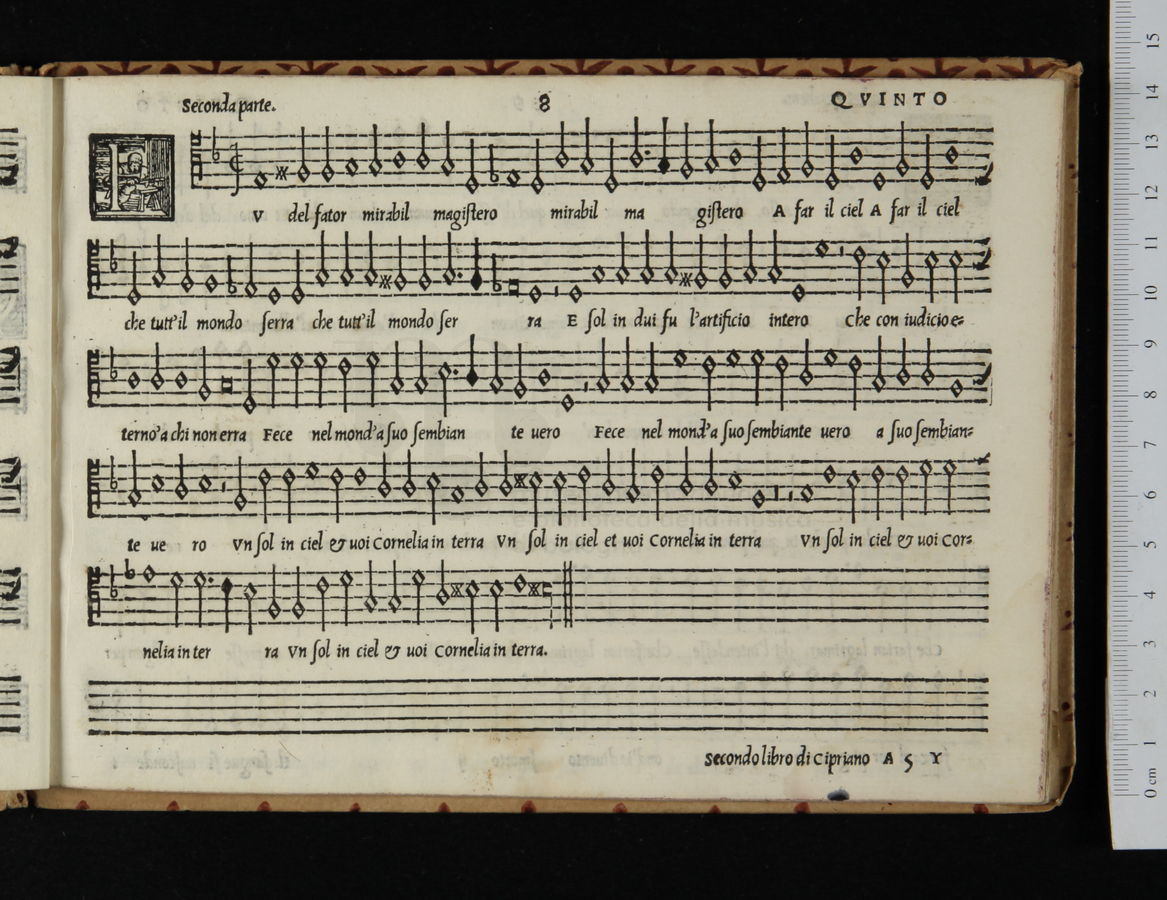 Seconda parte. 8 QVINTO
V del fator mirabil magistero mirabil ma gistero A far il ciel A far il ciel
che tutt'il mondo serra che tutt'il mondo ser ra E sol in dui fu l'artificio intero che con iudicio e=
terno'a chi non erra Fece nel mond'a suo sembian te uero Fece nel mond'a suo sembiante uero a suo sembian=
te ue ro Vn sol in ciel & uoi Cornelia in terra Vn sol in ciel et uoi Cornelia in terra Vn sol in ciel & uoi Cor=
nelia in ter ra Vn sol in ciel & uoi Cornelia in terra.
Secondo libro di Cipriano A 5 Y
15
14
13
12
11
10
9
8
7
6
5
4
3
2
1
0 cm